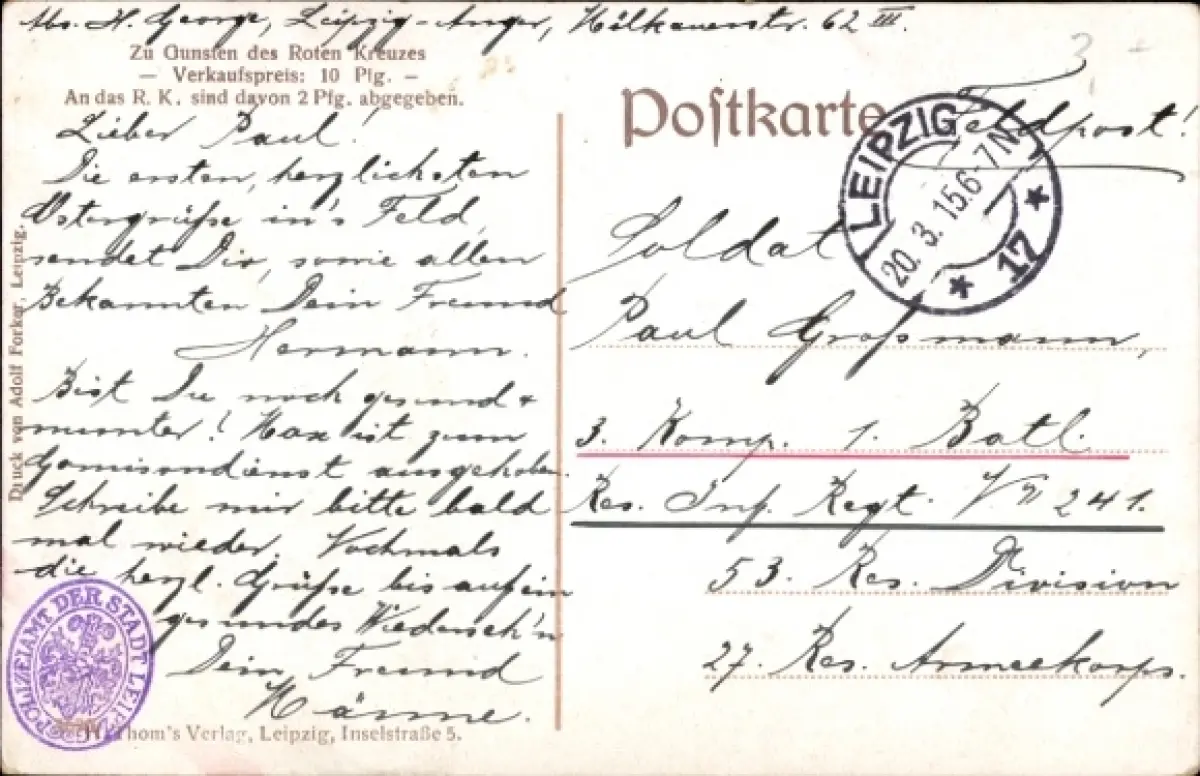 Abs. H. George, Leipzig-Anger, Kölkauerstr. 62 III.
Zu Gunsten des Roten Kreuzes
— Verkaufspreis: 10 Pfg. —
An das R. K. sind davon 2 Pfg. abgegeben.
Lieber Paul!
Die ersten, herzlichsten
Ostergrüße in's Feld,
sendet Dir, sowie allen
Bekannten Dein Freund
Hermann.
Bist Du noch gesund +
munter! Max ist zum
Garnisondienst ausgehoben.
Schreibe mir bitte bald
mal wieder. Nochmals
die herzl. Grüße bis auf ein
gesundes Wiederseh'n
Dein Freund
Männe.
Druck von Adolf Forker, Leipzig.
POLIZEIAMT DER STADT LEIPZIG
Thom's Verlag, Leipzig, Inselstraße 5.
3
Postkarte
Feldpost!
LEIPZIG
20. 3. 15. 6-7 N
* 17 *
Soldat
Paul Großmann,
3. Komp. 1. Batl.
Res. Inf. Regt. No 241.
53. Res. Division
27. Res. Armeekorps.